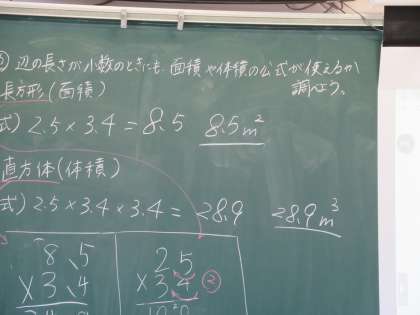 辺の長さが小数のときにも、面積や体積の公式が使えるか
調べよう。
長方形(面積)
式) 2.5 × 3.4 = 8.5 8.5m²
直方体(体積)
式) 2.5 × 3.4 × 3.4 = 28.9 28.9m³
8.5
× 3.4
25
× 3.4
②